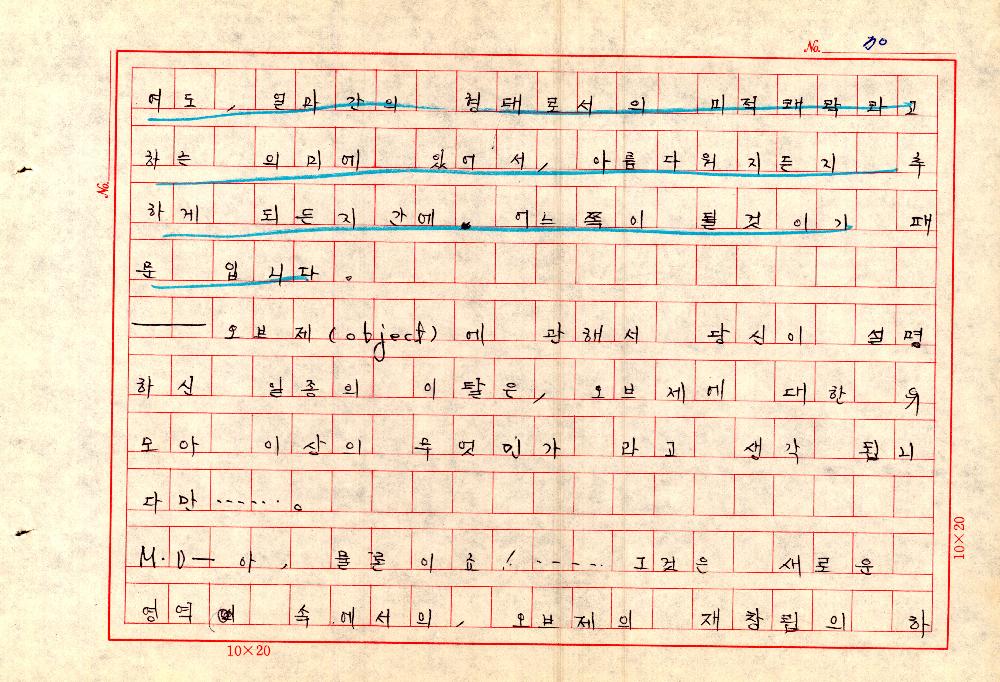 No. 70
여도, 얼마 간의 형태로서의 미적쾌락라고
하는 의미에 있어서, 아름다워지든지 추
하게 되든지 간에. 어느쪽이 될것이기 때
문 입니다.
── 오브제(object)에 관해서 당신이 설명
하신 일종의 이탈은, 오브제에 대한 유
모아 이상의 무엇인가 라고 생각 됩니
다만 ‥‥‥.
M.D─ 아, 물론이죠!‥‥‥ 그것은 새로운
영역 속에서의, 오브제의 재창립의 하
No.
10×20
10×20